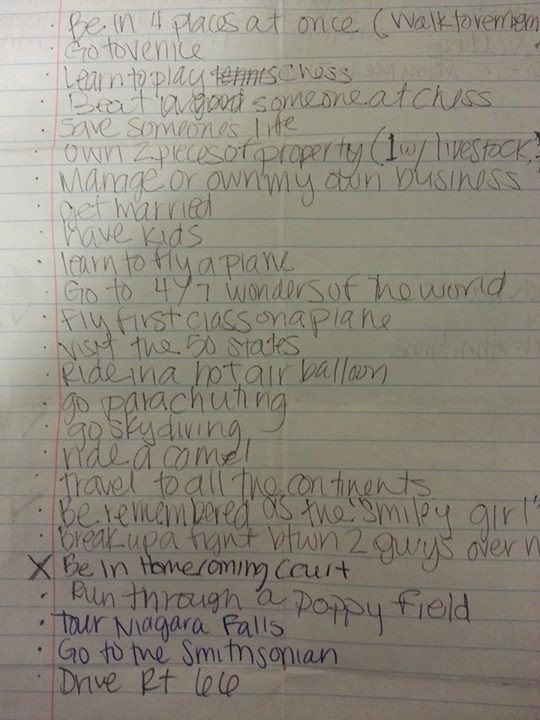 · Be in 4 places at once (Walk to remem
· Go to venice
· Learn to play tennis chess
· Beat good someone at chess
· Save someones life
· own 2 pieces of property (1 w/ livestock,
· Manage or own my own business
· get married
· have kids
· learn to fly a plane
· Go to 4/7 wonders of the world
· fly first class on a plane
· visit the 50 states
· Ride in a hot air balloon
· go parachuting
· go skydiving
· ride a camel
· travel to all the continents
· Be remembered as the "smiley girl"
· Break up a fight btwn 2 guys over
X Be in Homecoming Court
· Run through a poppy field
· tour Niagara Falls
· Go to the Smithsonian
· Drive Rt 66